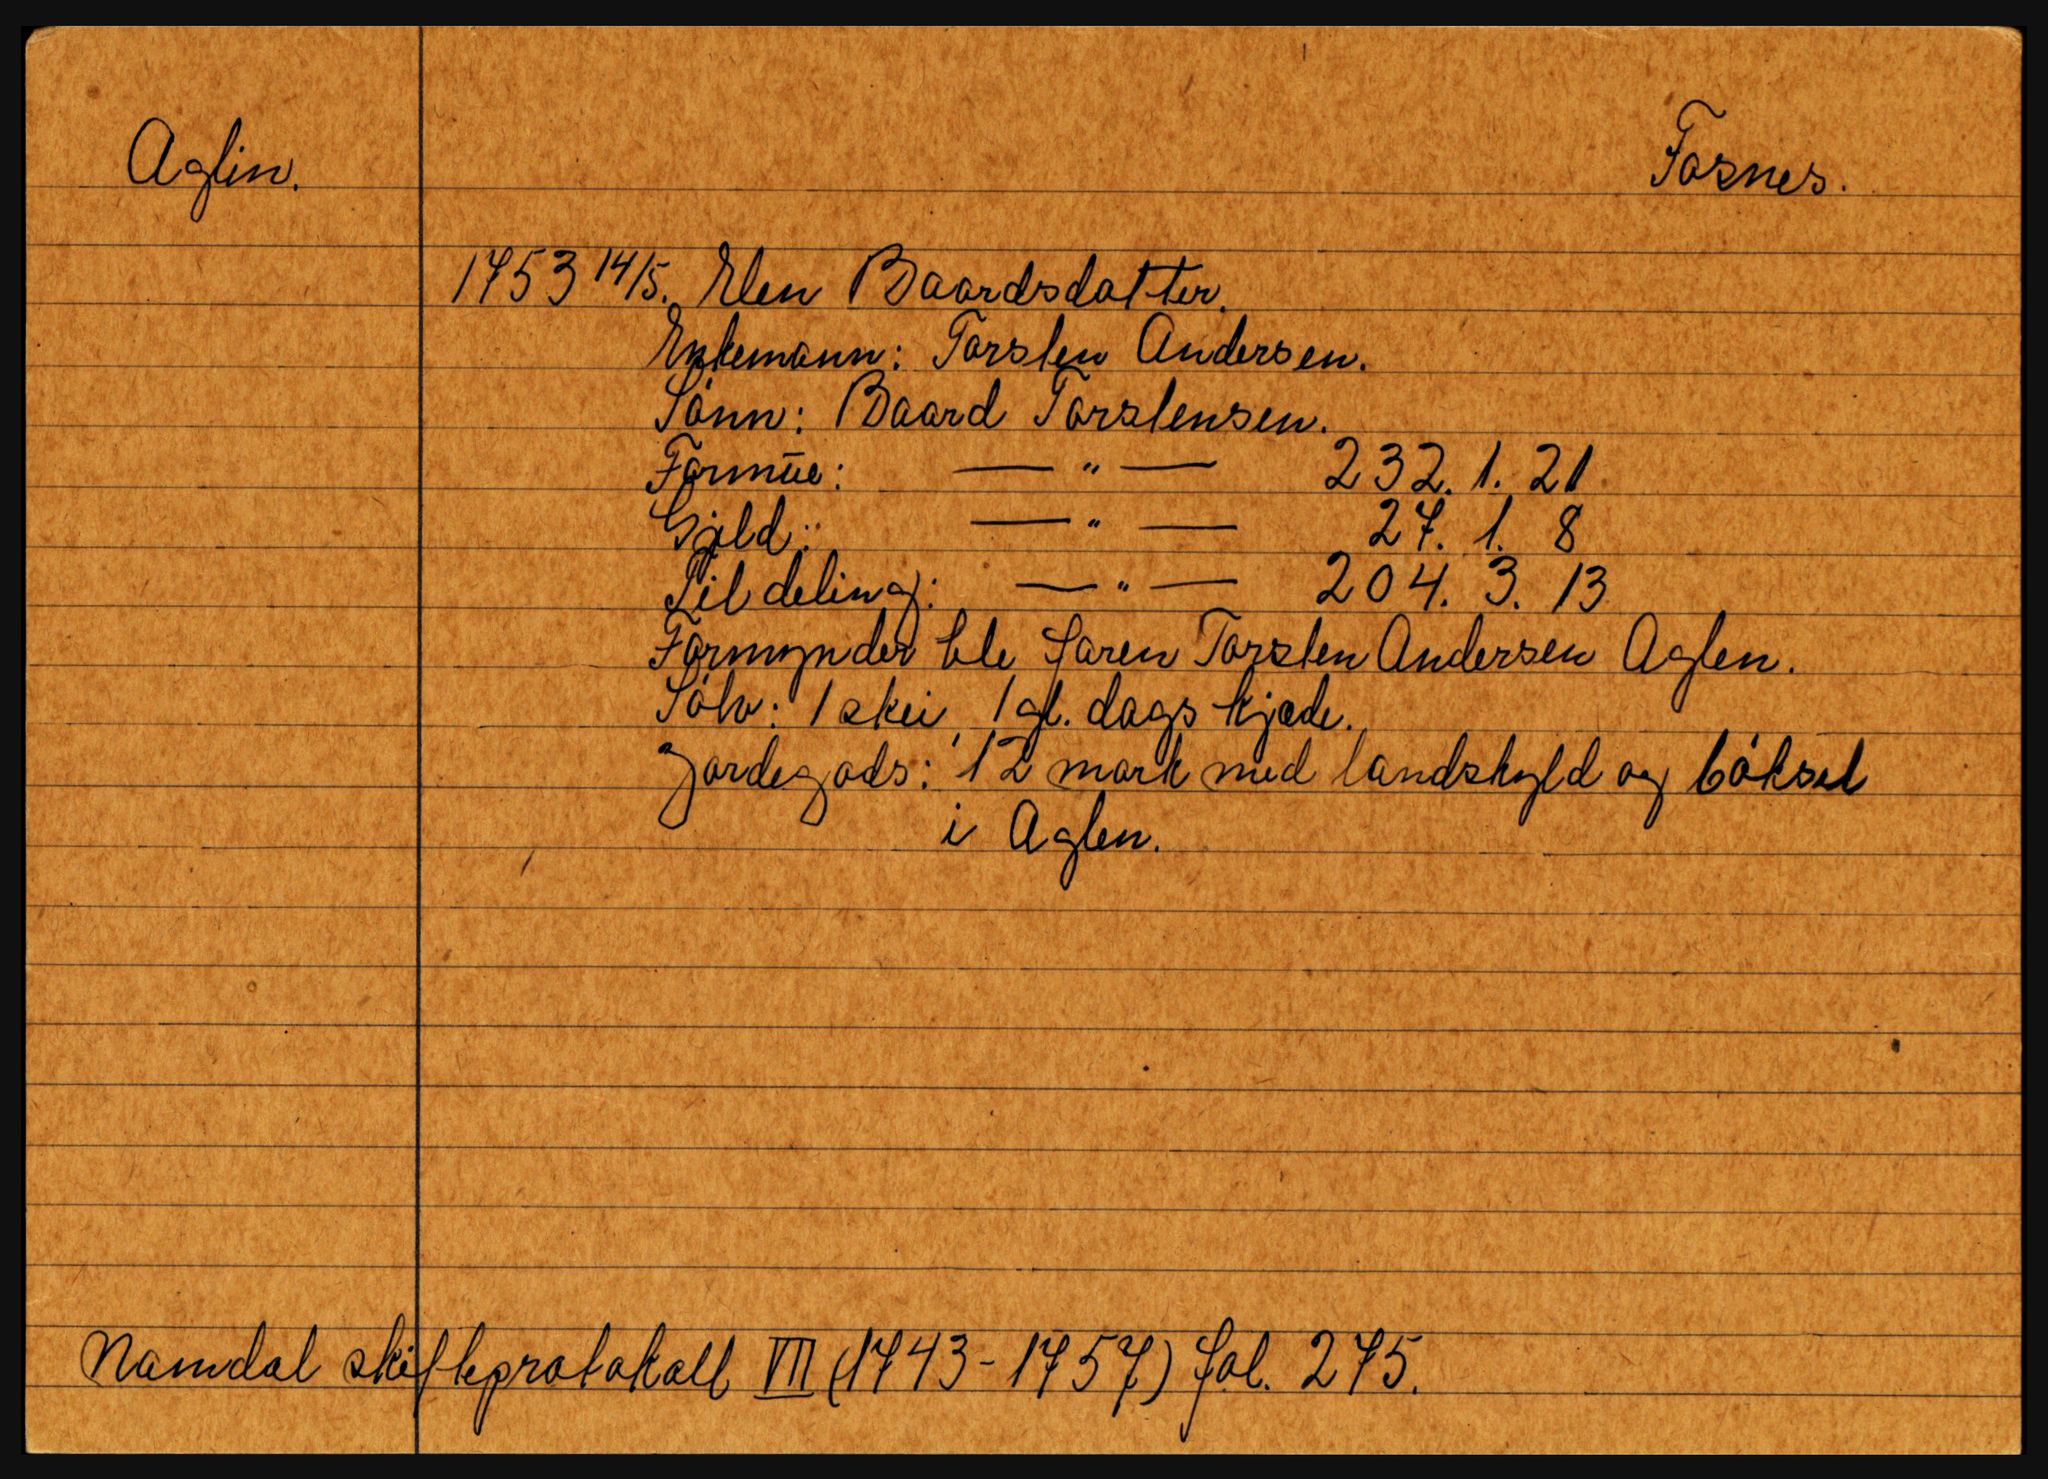 Aglen.
Fosnes.
1753 14/5. Elen Baardsdatter.
Enkemann: Torsten Andersen.
Sønn: Baard Torstensen.
Formue: — " — 232. 1. 21
Gjeld: — " — 27. 1. 8
Til deling: — " — 204. 3. 13
Formynder ble faren Torsten Andersen Aglen.
Sølv: 1 skei, 1 gl. dags kjede.
Jordegods: 12 mark med landskyld og bøksel
i Aglen.
Namdal skifteprotokoll VII (1743-1757) fol. 275.